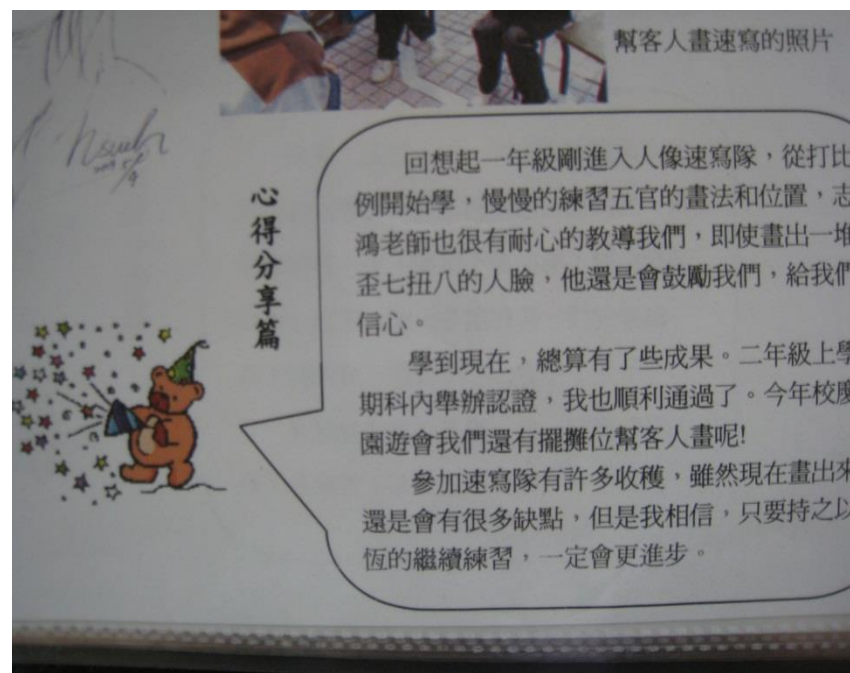 幫客人畫速寫的照片
心得分享篇
回想起一年級剛進入人像速寫隊，從打比
例開始學，慢慢的練習五官的畫法和位置，志
鴻老師也很有耐心的教導我們，即使畫出一堆
歪七扭八的人臉，他還是會鼓勵我們，給我們
信心。
學到現在，總算有了些成果。二年級上學
期科內舉辦認證，我也順利通過了。今年校慶
園遊會我們還有擺攤位幫客人畫呢!
參加速寫隊有許多收穫，雖然現在畫出來
還是會有很多缺點，但是我相信，只要持之以
恆的繼續練習，一定會更進步。